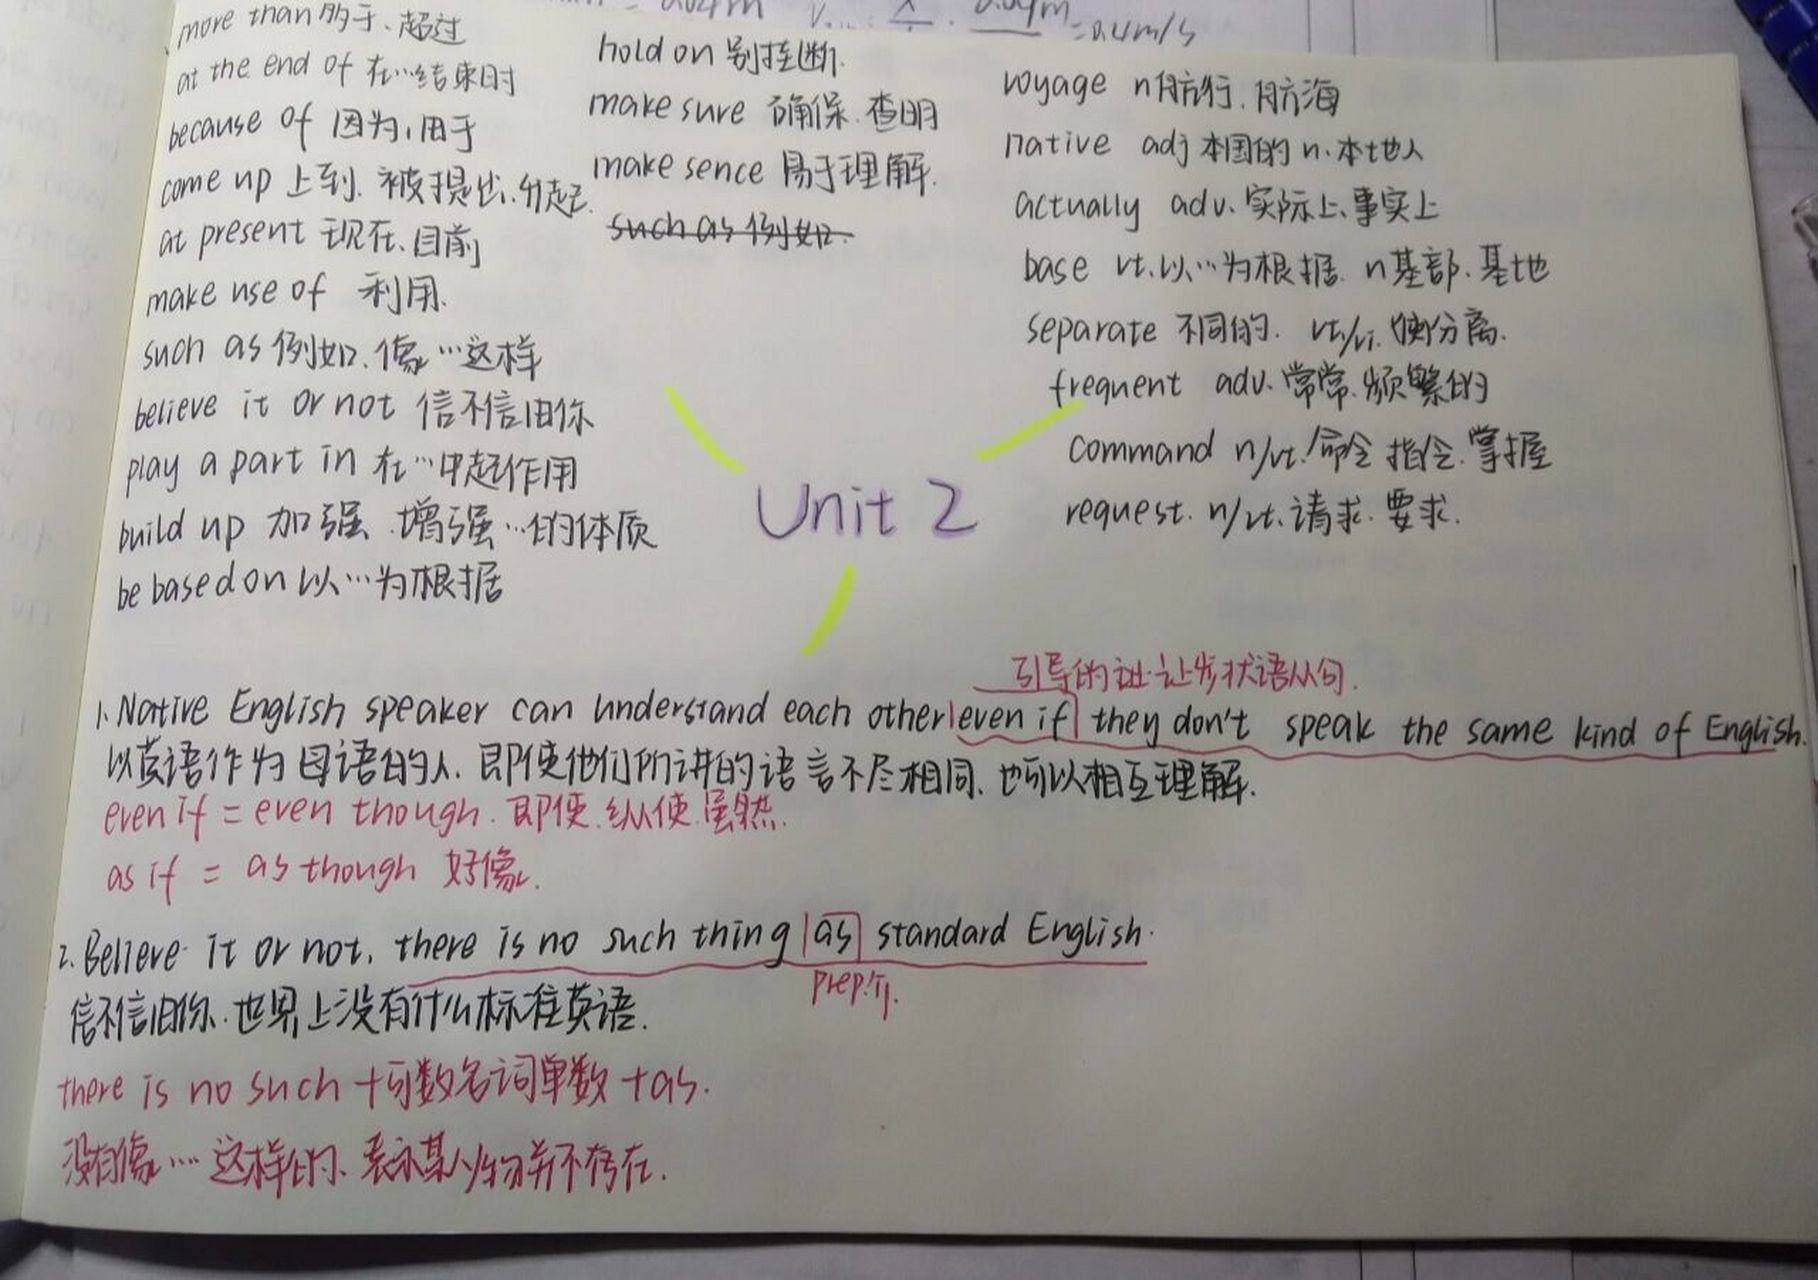 more than 多于、超过
at the end of 在…结束时
because of 因为,由于
come up 上到. 被提出.升起
at present 现在、目前
make use of 利用.
such as 例如. 像…这样
believe it or not 信不信由你
play a part in 在…中起作用
build up 加强 .增强…的体质
be based on 以…为根据
hold on 别挂断.
make sure 确保.查明
make sence 易于理解.
such as 例如.
voyage n航行.航海
native adj 本国的 n.本地人
actually adv.实际上、事实上
base vt.以…为根据. n基部.基地
separate 不同的. vt/vi.使分离.
frequent adv.常常.频繁的
command n/vt.命令 指令.掌握
request. n/vt.请求.要求.
Unit 2
引导的 让步状语从句.
1. Native English speaker can understand each other even if they don't speak the same kind of English.
以英语作为母语的人.即使他们所讲的语言不尽相同.也可以相互理解.
even if = even though. 即使.纵使.虽然.
as if = as though 好像.
2. Believe it or not, there is no such thing as standard English.
prep.
信不信由你.世界上没有什么标准英语.
there is no such +可数名词单数 +as.
没有像…这样的、表示某人/物并不存在.